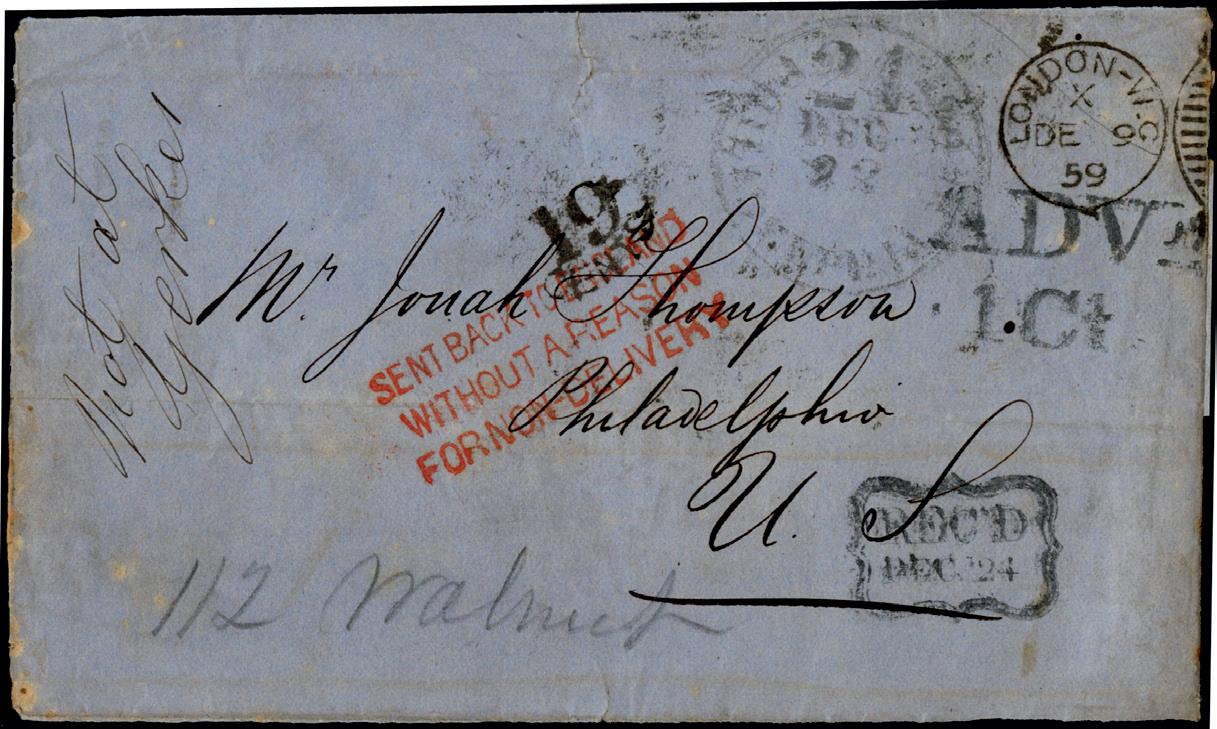 LONDON-W.C
X
DE 9
59
21
DEC
23
ADV
1 Ct
19
Mr. Jonah Thompson
Philadelphia
U. S
SENT BACK TO ENGLAND
WITHOUT A REASON
FOR NON-DELIVERY
REC'D
DEC. 24
112 Walnut
Not at